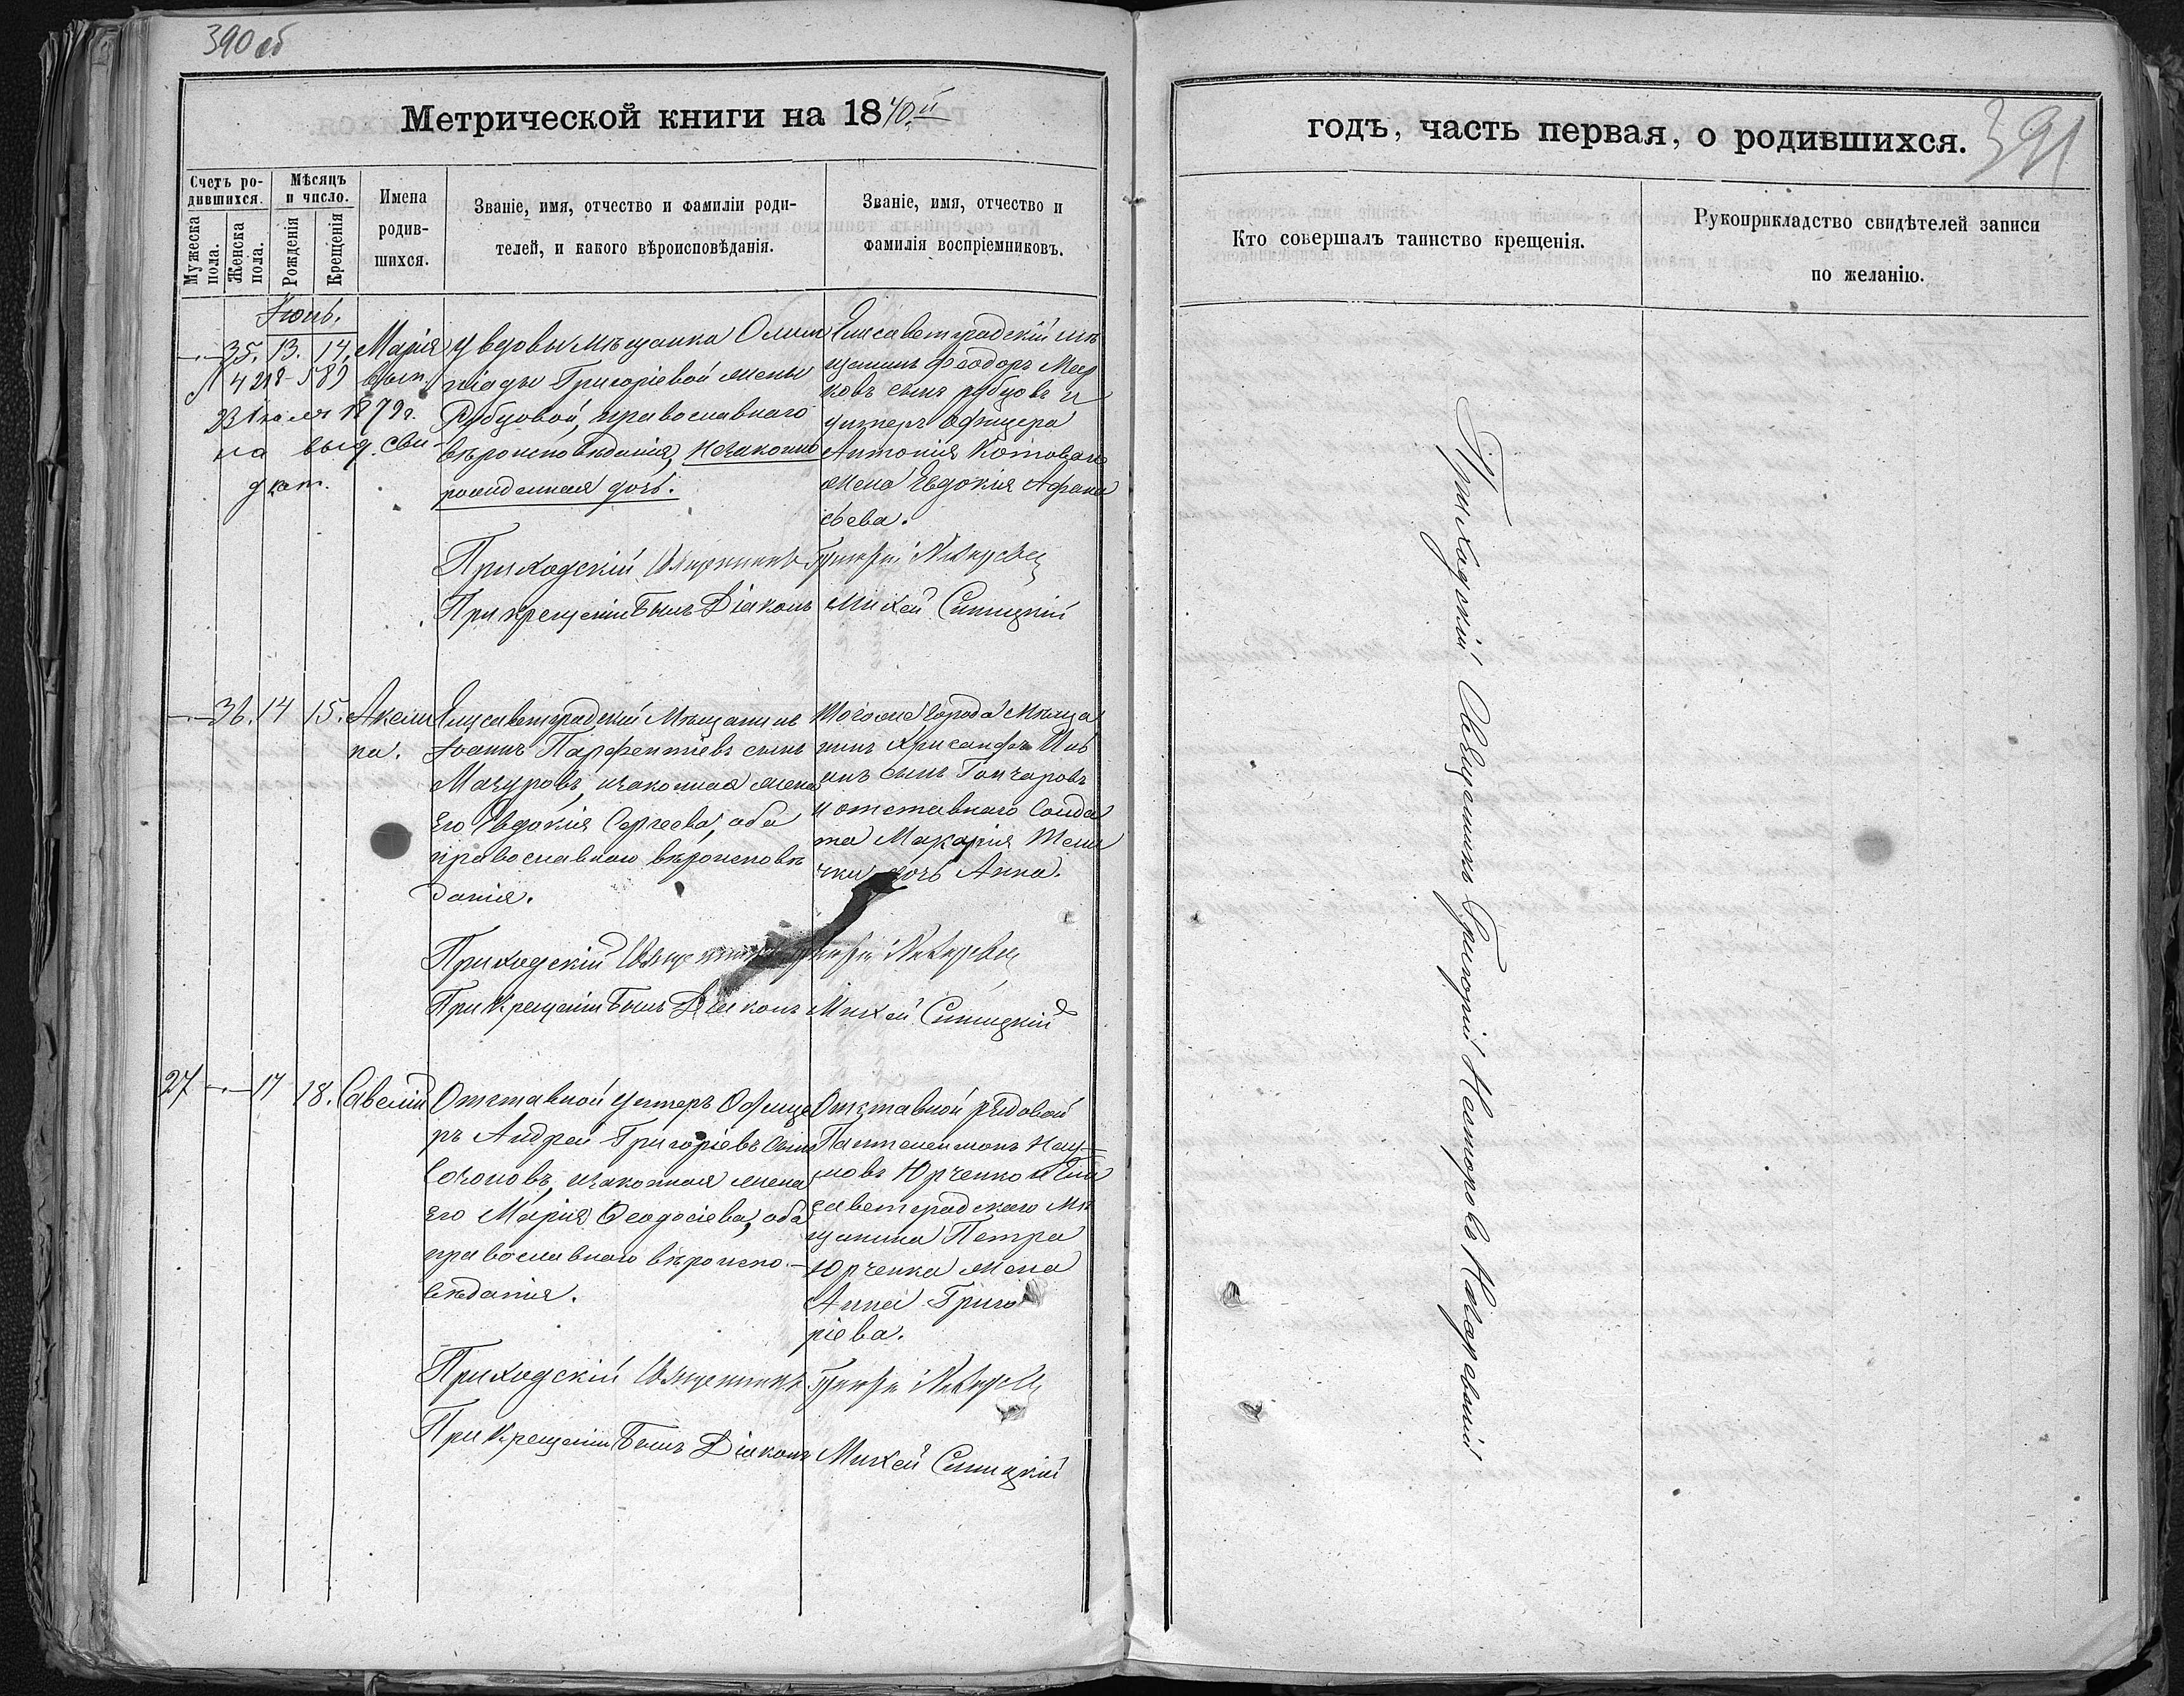 390 об
Метрической книги на 1870й
Счетъ ро-
дившихся.
Мужеска
пола.
Женска
пола.
Мѣсяцъ
и число.
Рожденія
Крещенія
Имена
родив-
шихся.
Званіе, имя, отчество и фамиліи роди-
телей, и какого вѣроисповѣданія.
Званіе, имя, отчество и
фамилія воспріемниковъ.
Іюнь.
35. 13. 14. Марія
23 Іюля 1879 г.
на выд. сви-
дѣт.
У вдовы мѣщанка Олим
піады Григоріевой жены
Рубцовой, православнаго
вѣроисповѣданія, незаконно
рожденная дочь.
Елисаветградскій мѣ
щанинъ Ѳеодоръ Мар
ковъ сынъ Рубцовъ и
унтеръ офицера
Антонія Котоваго
жена Евдокія Афана
сьева.
Приходскій Священникъ Григорій
При крещеніи былъ Діаконъ Михей Синицкій
36. 14 15. Акели
на.
Елисаветградскій Мѣщанинъ
Іоаннъ Парфентіевъ сынъ
Мазуровъ, и законная жена
Его Евдокія Сергеева, оба
православнаго вѣроисповѣ
данія.
Того же города мѣща
нинъ Хрисанфъ Ив
анъ сынъ Гончаровъ
и отставнаго Солда
та Макарія
дочь Анна.
Приходскій Священникъ Григорій
При Крещеніи былъ Діаконъ Михей Синицкій
27 17 18. Савелій
Отставной унтеръ Офице
ръ Андрей Григоріевъ сынъ
и законная жена
его Марія Ѳеодосіева, оба
православнаго вѣроиспо-
вѣданія.
Отставной рядовой
Пантелеимонъ Нау-
мовъ Юрченко и Ели
саветградскаго мѣ
щанина Петра
Юрченка жена
Анна Григо
ріева.
Приходскій Священникъ Григорій
При Крещеніи былъ Діаконъ Михей Синицкій
годъ, часть первая, о родившихся.
391
Кто совершалъ таинство крещенія.
Рукоприкладство свидѣтелей записи
по желанію.
Приходскій Священникъ Григорій